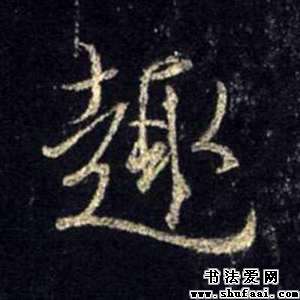 趣
书法爱网
www.shufaai.com